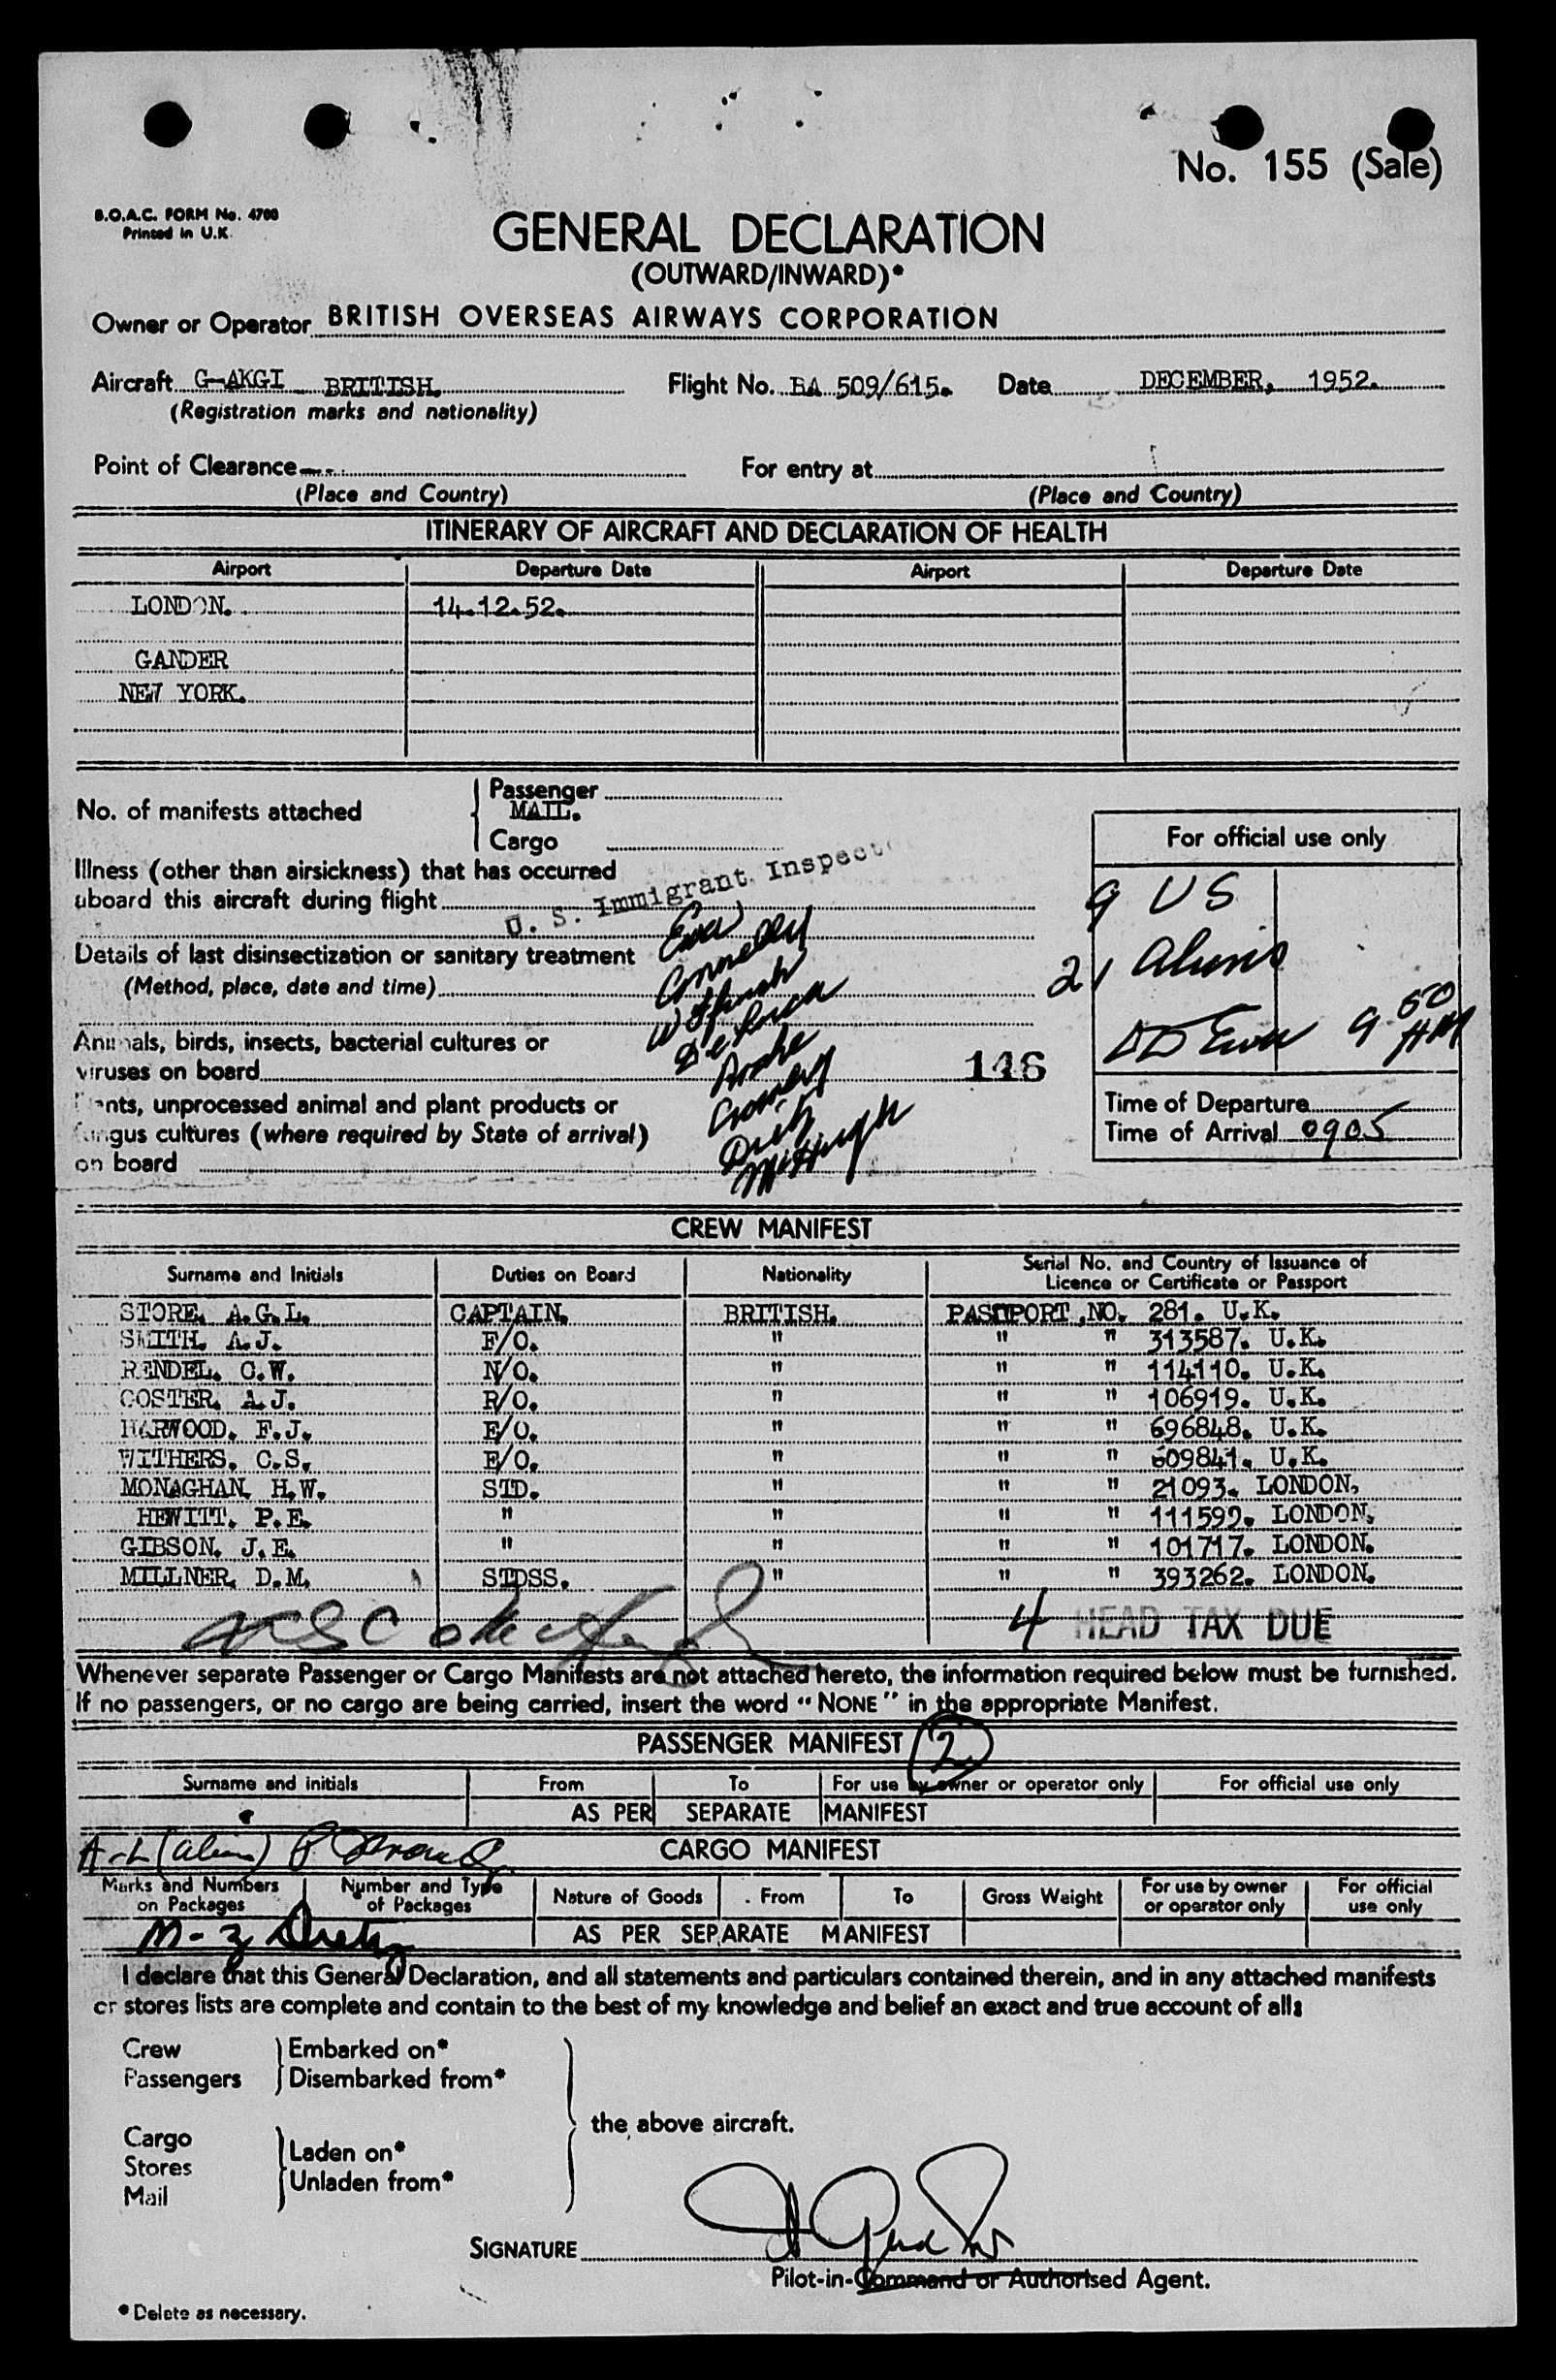 No. 155 (Sale)
B.O.A.C. FORM No. 4700
Printed in U.K.
GENERAL DECLARATION
(OUTWARD/INWARD)*
Owner or Operator BRITISH OVERSEAS AIRWAYS CORPORATION
Aircraft G-AKGI BRITISH. Flight No. BA 509/615. Date DECEMBER, 1952.
(Registration marks and nationality)
Point of Clearance For entry at
(Place and Country) (Place and Country)
ITINERARY OF AIRCRAFT AND DECLARATION OF HEALTH
Airport Departure Date Airport Departure Date
LONDON. 14.12.52.
GANDER
NEW YORK.
No. of manifests attached
Passenger
MAIL.
Cargo
For official use only
Illness (other than airsickness) that has occurred
aboard this aircraft during flight
U. S. Immigrant Inspect
9 US
21 Aliens
Ewer
Connelly
Details of last disinsectization or sanitary treatment
(Method, place, date and time)
Animals, birds, insects, bacterial cultures or
viruses on board
146
9 50 AM
Plants, unprocessed animal and plant products or
fungus cultures (where required by State of arrival)
on board
McHugh
Time of Departure
Time of Arrival 0905
CREW MANIFEST
Surname and Initials Duties on Board Nationality Serial No. and Country of Issuance of
Licence or Certificate or Passport
STORE, A.G.L. CAPTAIN. BRITISH. PASSPORT NO. 281. U.K.
SMITH. A.J. F/O. " " " 313587. U.K.
RENDEL. C.W. N/O. " " " 114110. U.K.
COSTER. A.J. R/O. " " " 106919. U.K.
HARWOOD. F.J. E/O. " " " 696848. U.K.
WITHERS. C.S. E/O. " " " 609841. U.K.
MONAGHAN. H.W. STD. " " " 21093. LONDON.
HEWITT. P.E. " " " " 111599. LONDON.
GIBSON. J.E. " " " " 101717. LONDON.
MILLNER. D.M. STDSS. " " " 393262. LONDON.
4 HEAD TAX DUE
Whenever separate Passenger or Cargo Manifests are not attached hereto, the information required below must be furnished.
If no passengers, or no cargo are being carried, insert the word "NONE" in the appropriate Manifest.
PASSENGER MANIFEST 2
Surname and initials From To For use by owner or operator only For official use only
AS PER SEPARATE MANIFEST
A-L (aliens)
CARGO MANIFEST
Marks and Numbers on Packages Number and Type of Packages Nature of Goods From To Gross Weight For use by owner or operator only For official use only
M-Z
AS PER SEPARATE MANIFEST
I declare that this General Declaration, and all statements and particulars contained therein, and in any attached manifests
or stores lists are complete and contain to the best of my knowledge and belief an exact and true account of all:
Crew Embarked on*
Passengers Disembarked from*
the above aircraft.
Cargo Laden on*
Stores Unladen from*
Mail
SIGNATURE
Pilot-in-Command or Authorised Agent.
* Delete as necessary.